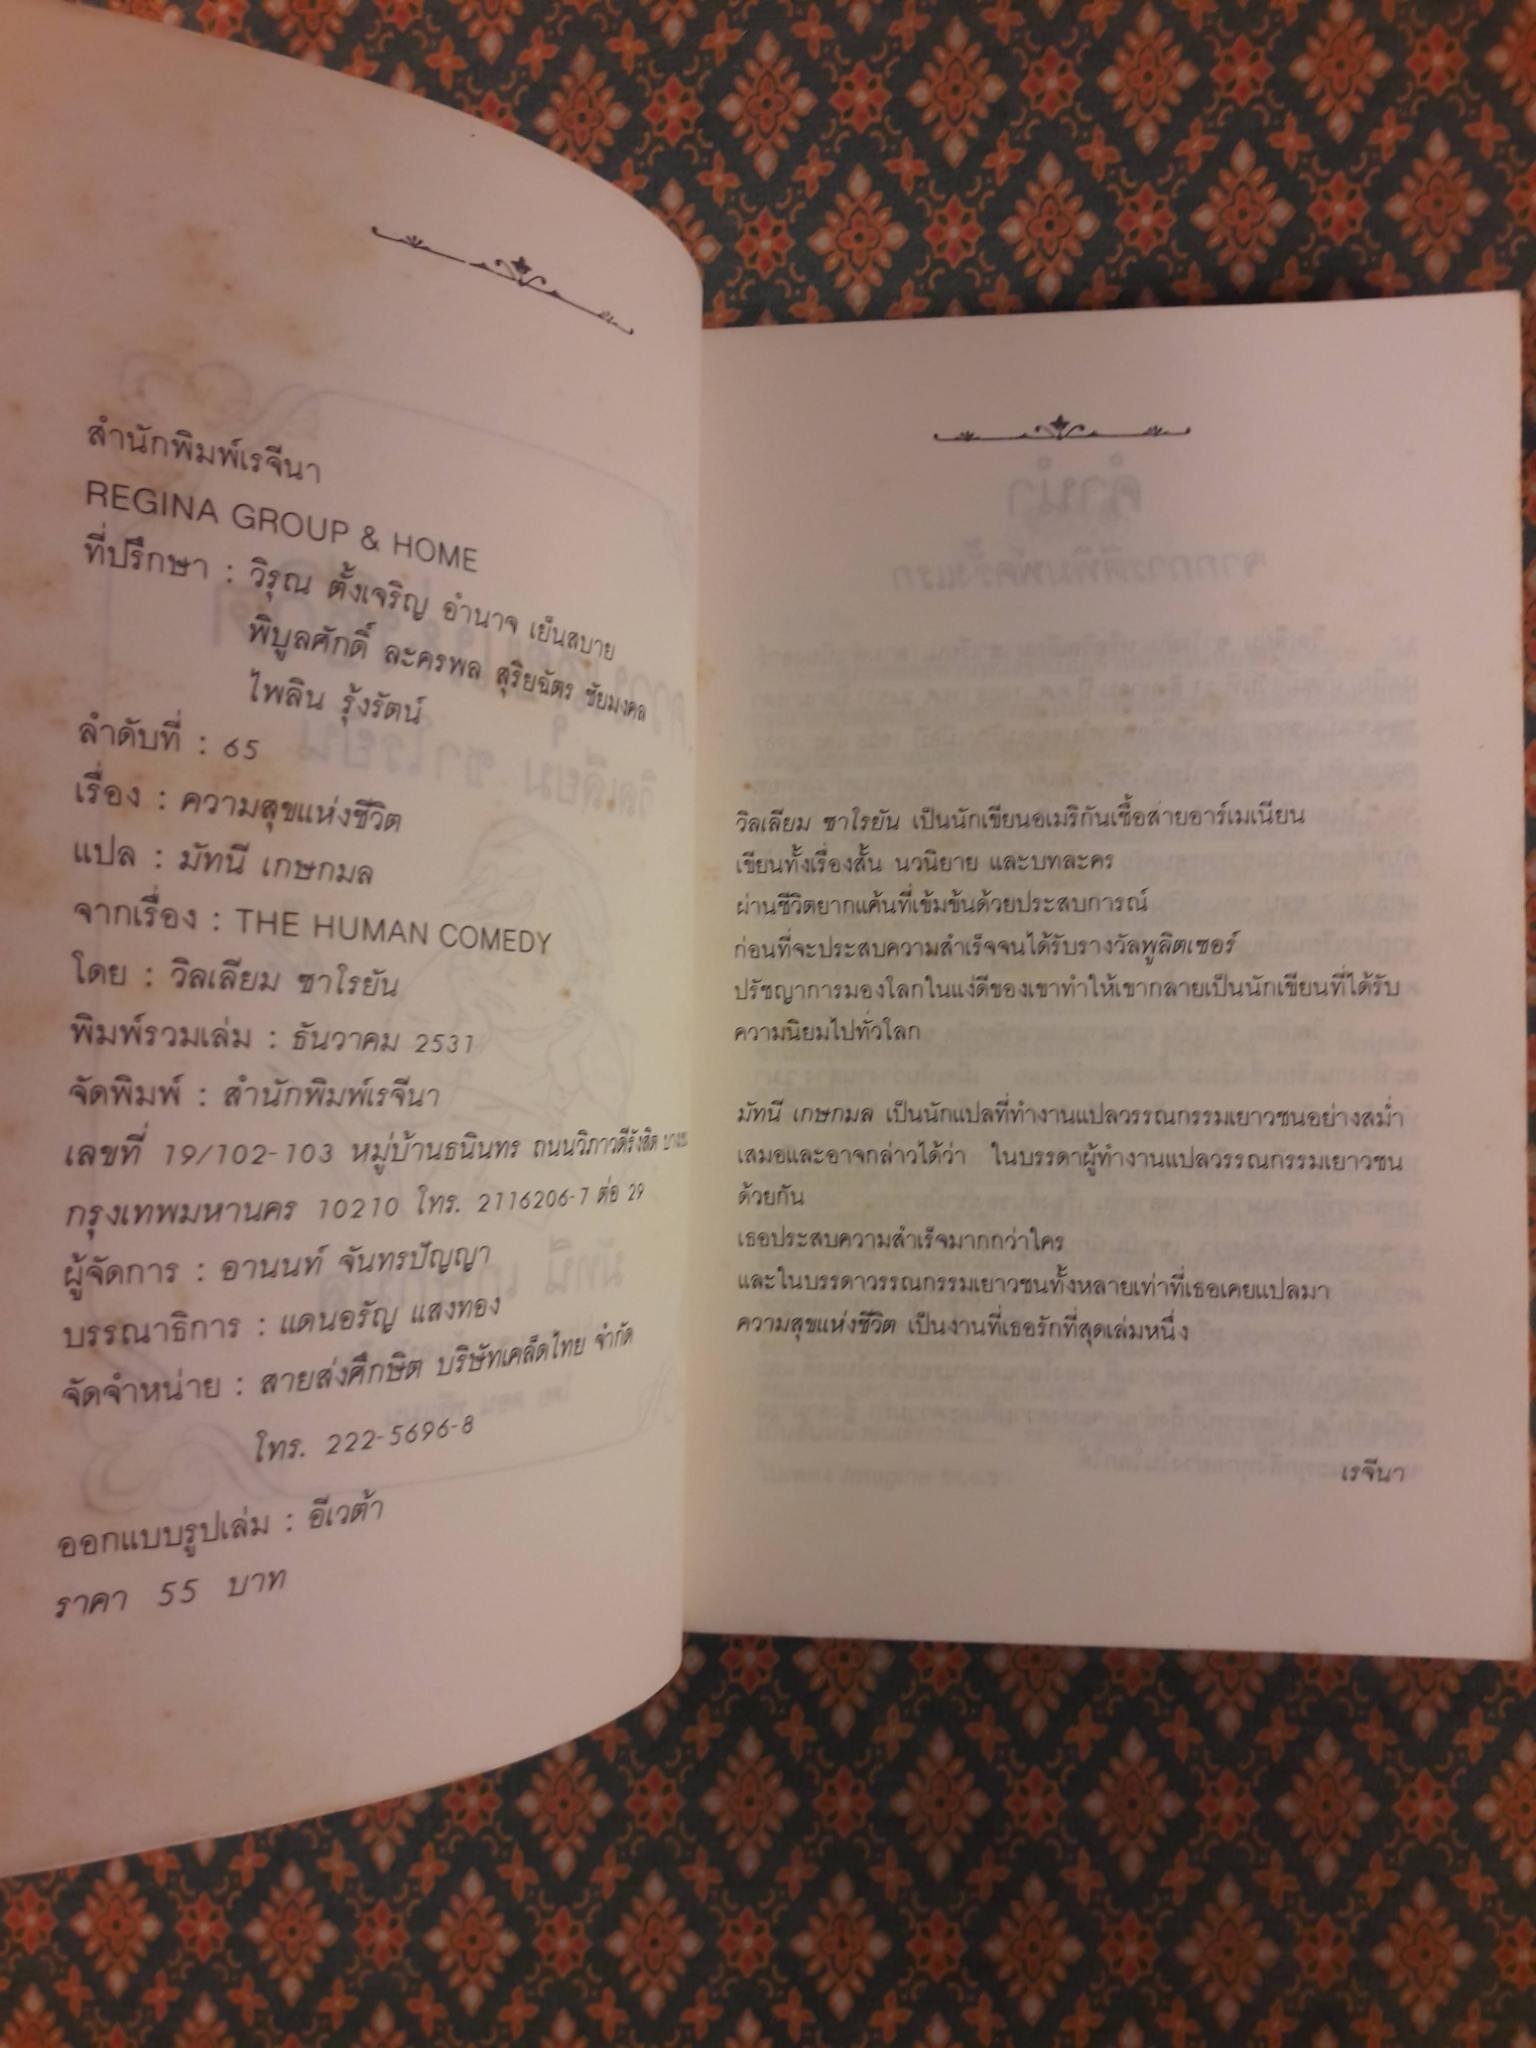 สำนักพิมพ์เรจีนา
REGINA GROUP & HOME
ที่ปรึกษา : วิรุณ ตั้งเจริญ อำนาจ เย็นสบาย
พิบูลศักดิ์ ละครพล สุริยฉัตร ชัยมงคล
ไพลิน รุ้งรัตน์
ลำดับที่ : 65
เรื่อง : ความสุขแห่งชีวิต
แปล : มัทนี เกษกมล
จากเรื่อง : THE HUMAN COMEDY
โดย : วิลเลียม ซาโรยัน
พิมพ์รวมเล่ม : ธันวาคม 2531
จัดพิมพ์ : สำนักพิมพ์เรจีนา
เลขที่ 19/102-103 หมู่บ้านธนินทร ถนนวิภาวดีรังสิต
กรุงเทพมหานคร 10210 โทร. 2116206-7 ต่อ 29
ผู้จัดการ : อานนท์ จันทรปัญญา
บรรณาธิการ : แดนอรัญ แสงทอง
จัดจำหน่าย : สายส่งศึกษิต บริษัทเคล็ดไทย จำกัด
โทร. 222-5696-8
ออกแบบรูปเล่ม : อีเวต้า
ราคา 55 บาท
วิลเลียม ซาโรยัน เป็นนักเขียนอเมริกันเชื้อสายอาร์เมเนียน
เขียนทั้งเรื่องสั้น นวนิยาย และบทละคร
ผ่านชีวิตยากแค้นที่เข้มข้นด้วยประสบการณ์
ก่อนที่จะประสบความสำเร็จจนได้รับรางวัลพูลิตเซอร์
ปรัชญาการมองโลกในแง่ดีของเขาทำให้เขากลายเป็นนักเขียนที่ได้รับ
ความนิยมไปทั่วโลก
มัทนี เกษกมล เป็นนักแปลที่ทำงานแปลวรรณกรรมเยาวชนอย่างสม่ำ
เสมอและอาจกล่าวได้ว่า ในบรรดาผู้ทำงานแปลวรรณกรรมเยาวชน
ด้วยกัน
เธอประสบความสำเร็จมากกว่าใคร
และในบรรดาวรรณกรรมเยาวชนทั้งหลายเท่าที่เธอเคยแปลมา
ความสุขแห่งชีวิต เป็นงานที่เธอรักที่สุดเล่มหนึ่ง
เรจีนา